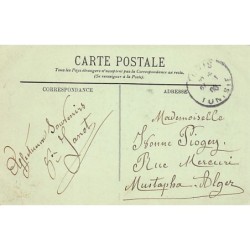 CARTE POSTALE
Tous les Pays étrangers n'acceptent pas la Correspondance au recto.
(Se renseigner à la Poste).
CORRESPONDANCE
ADRESSE
Affectueux Souvenirs
Mademoiselle
Yvonne Piogey
Rue Mercuri
Mustapha Alger
TUNISIE